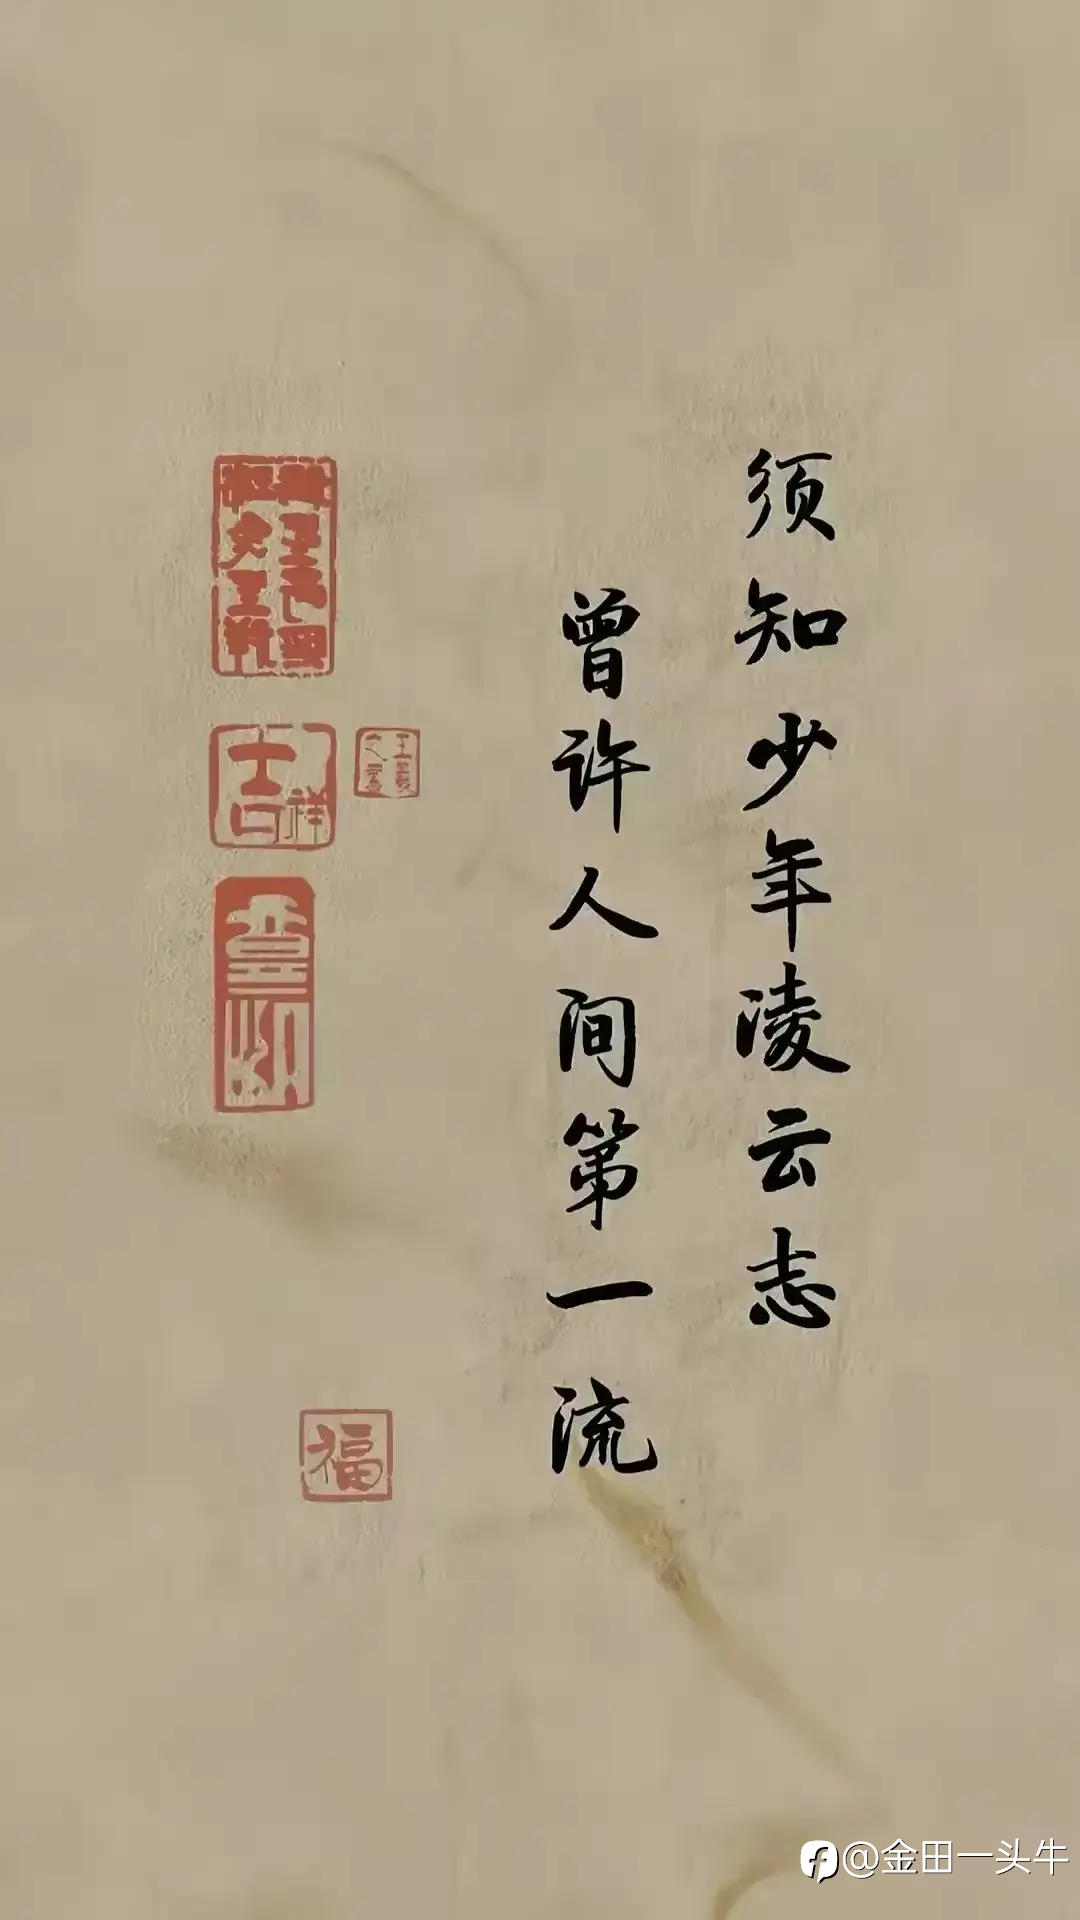 须知少年凌云志
曾许人间第一流
吉祥
福
@金田一头牛